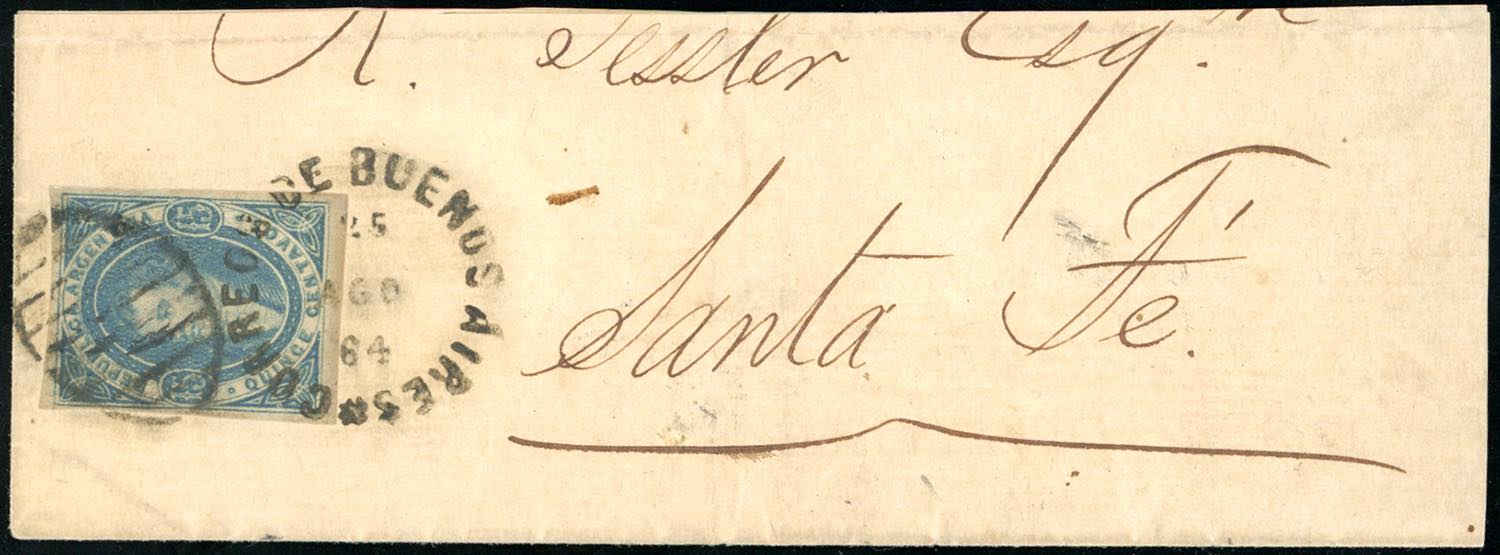 R. Tessler Esqr.
Santa Fé.
CORREOS DE BUENOS AIRES
25
AGO
64
REPUBLICA ARGENTINA
15
QUINCE CENTAVOS
15